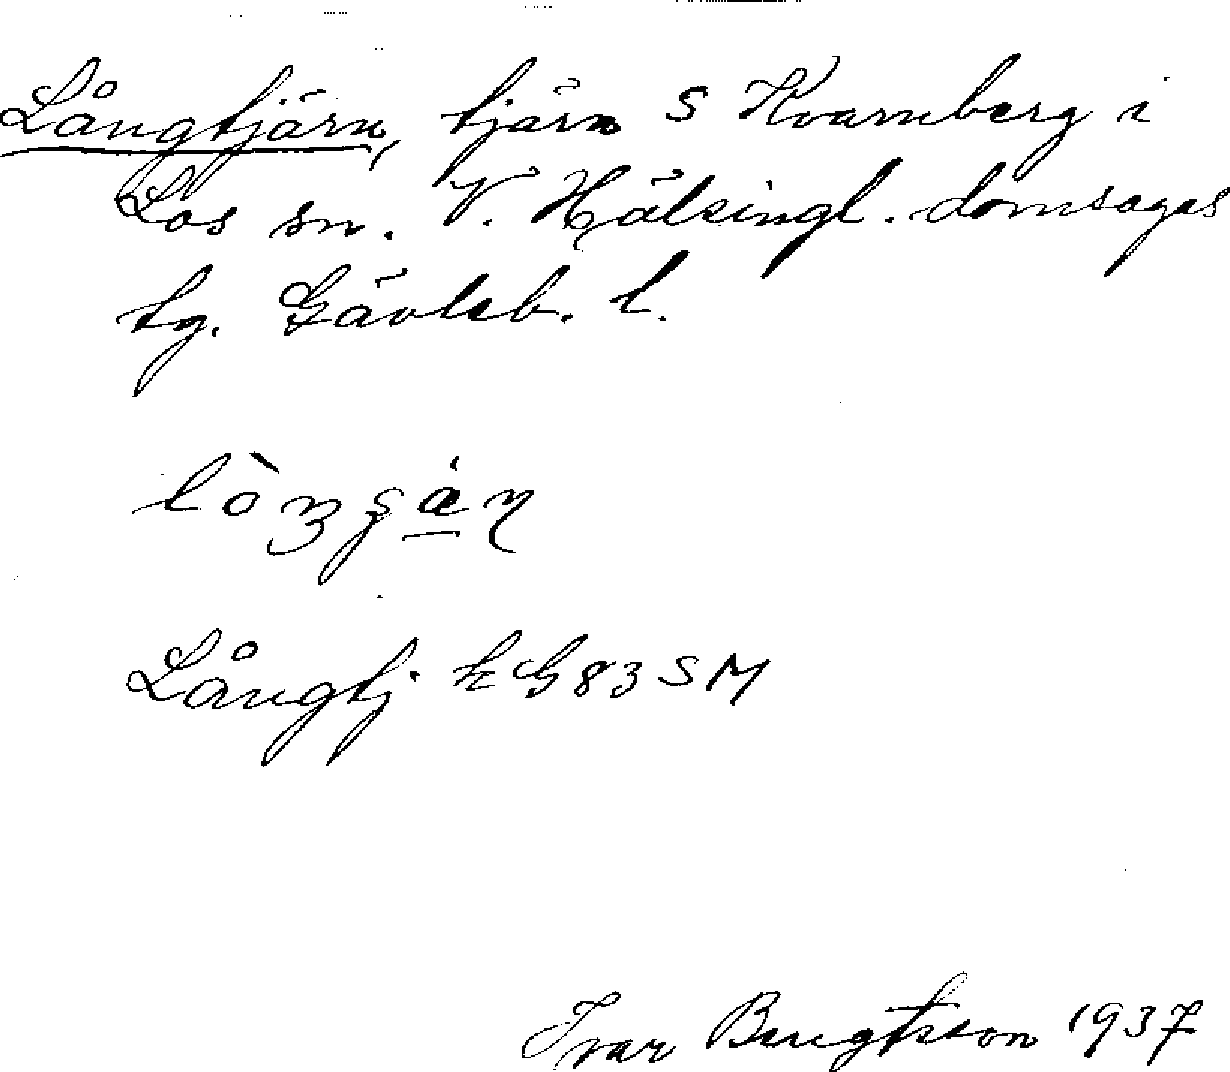 Långtjärn, tjärn S Kvarnberg i
Los sn. V. Hälsingl. domsagas
tg. Gävleb. l.
Långtj. EG83SM
Ivar Bengtsson 1937